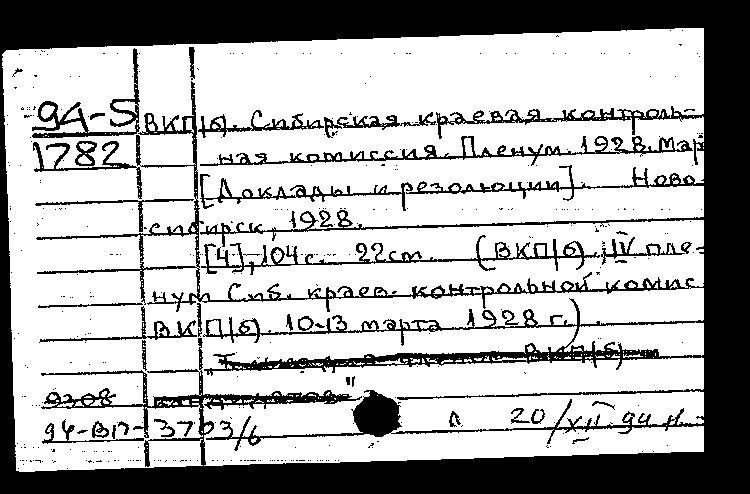 94-5 ВКП(б). Сибирская краевая контроль-
1782 ная комиссия. Пленум. 1928. Мар
[Доклады и резолюции]. Ново-
сибирск, 1928.
[4], 104 с. 22см. (ВКП(б). IV пле-
нум Сиб. краев. контрольной комис
ВКП(б). 10-13 марта 1928 г.).
"Только для членов ВКП(б)
9308 кандидатов"
94-ВП-3703/6 л 20/XII 94 н